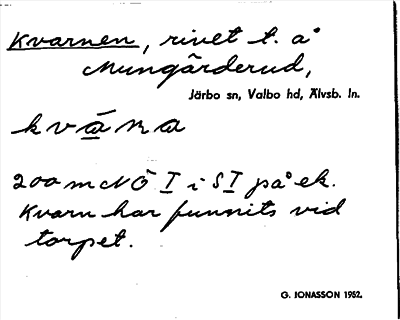 Kvarnen, rivet t. å
Mungärderud,
Järbo sn, Valbo hd, Älvsb. ln.
kvána
200 m NÖ I i SI på ek.
Kvarn har funnits vid
torpet.
G. JONASSON 1952.